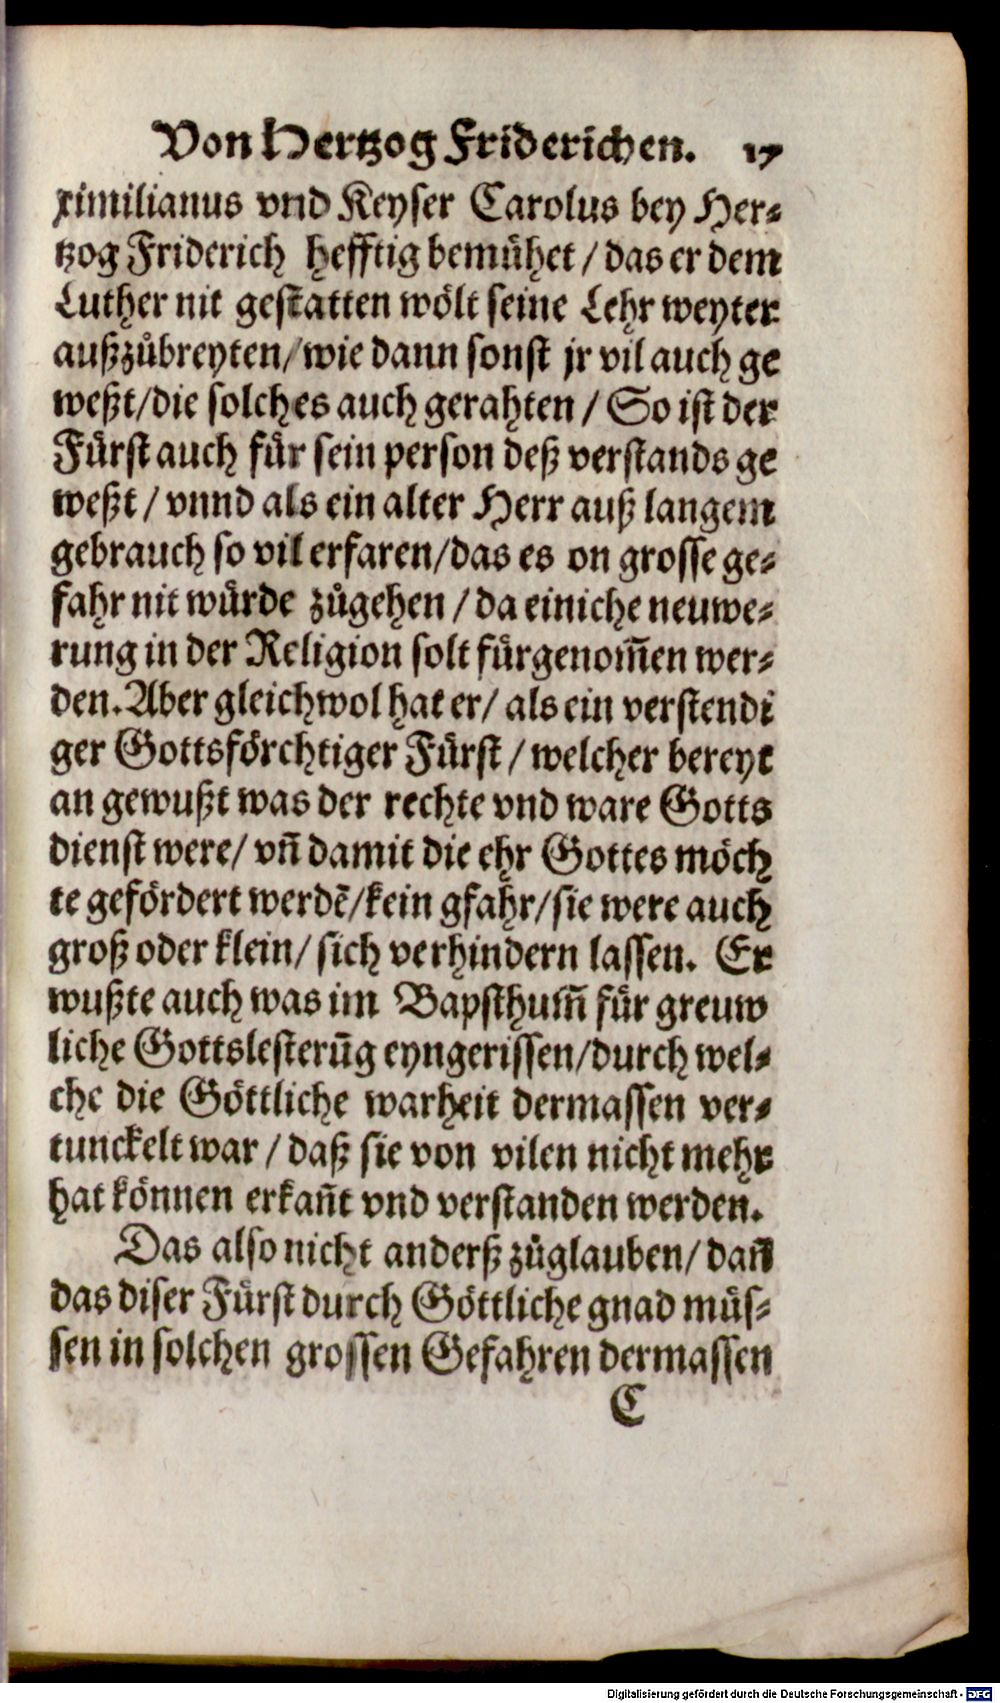 Von Hertzog Friderichen. 17
ximilianus vnd Keyser Carolus bey Her-
tzog Friderich hefftig bemühet / das er dem
Luther nit gestatten wölt seine Lehr weyter
außzůbreyten/ wie dann sonst jr vil auch ge
weßt/die solches auch gerahten / So ist der
Fürst auch für sein person deß verstands ge
weßt / vnnd als ein alter Herr auß langem
gebrauch so vil erfaren/das es on grosse ge-
fahr nit würde zůgehen / da einiche neuwe-
rung in der Religion solt fürgenom̃en wer-
den. Aber gleichwol hat er/ als ein verstendi
ger Gottsförchtiger Fürst / welcher bereyt
an gewußt was der rechte vnd ware Gotts
dienst were/ vñ damit die ehr Gottes möch
te gefördert werdẽ/kein gfahr/sie were auch
groß oder klein/ sich verhindern lassen. Er
wußte auch was im Bapsthum̃ für greuw
liche Gottslesterũg eyngerissen/durch wel-
che die Göttliche warheit dermassen ver-
tunckelt war / daß sie von vilen nicht mehr
hat können erkañt vnd verstanden werden.
Das also nicht anderß zůglauben/ dañ
das diser Fürst durch Göttliche gnad müs-
sen in solchen grossen Gefahren dermassen
C
Digitalisierung gefördert durch die Deutsche Forschungsgemeinschaft - DFG